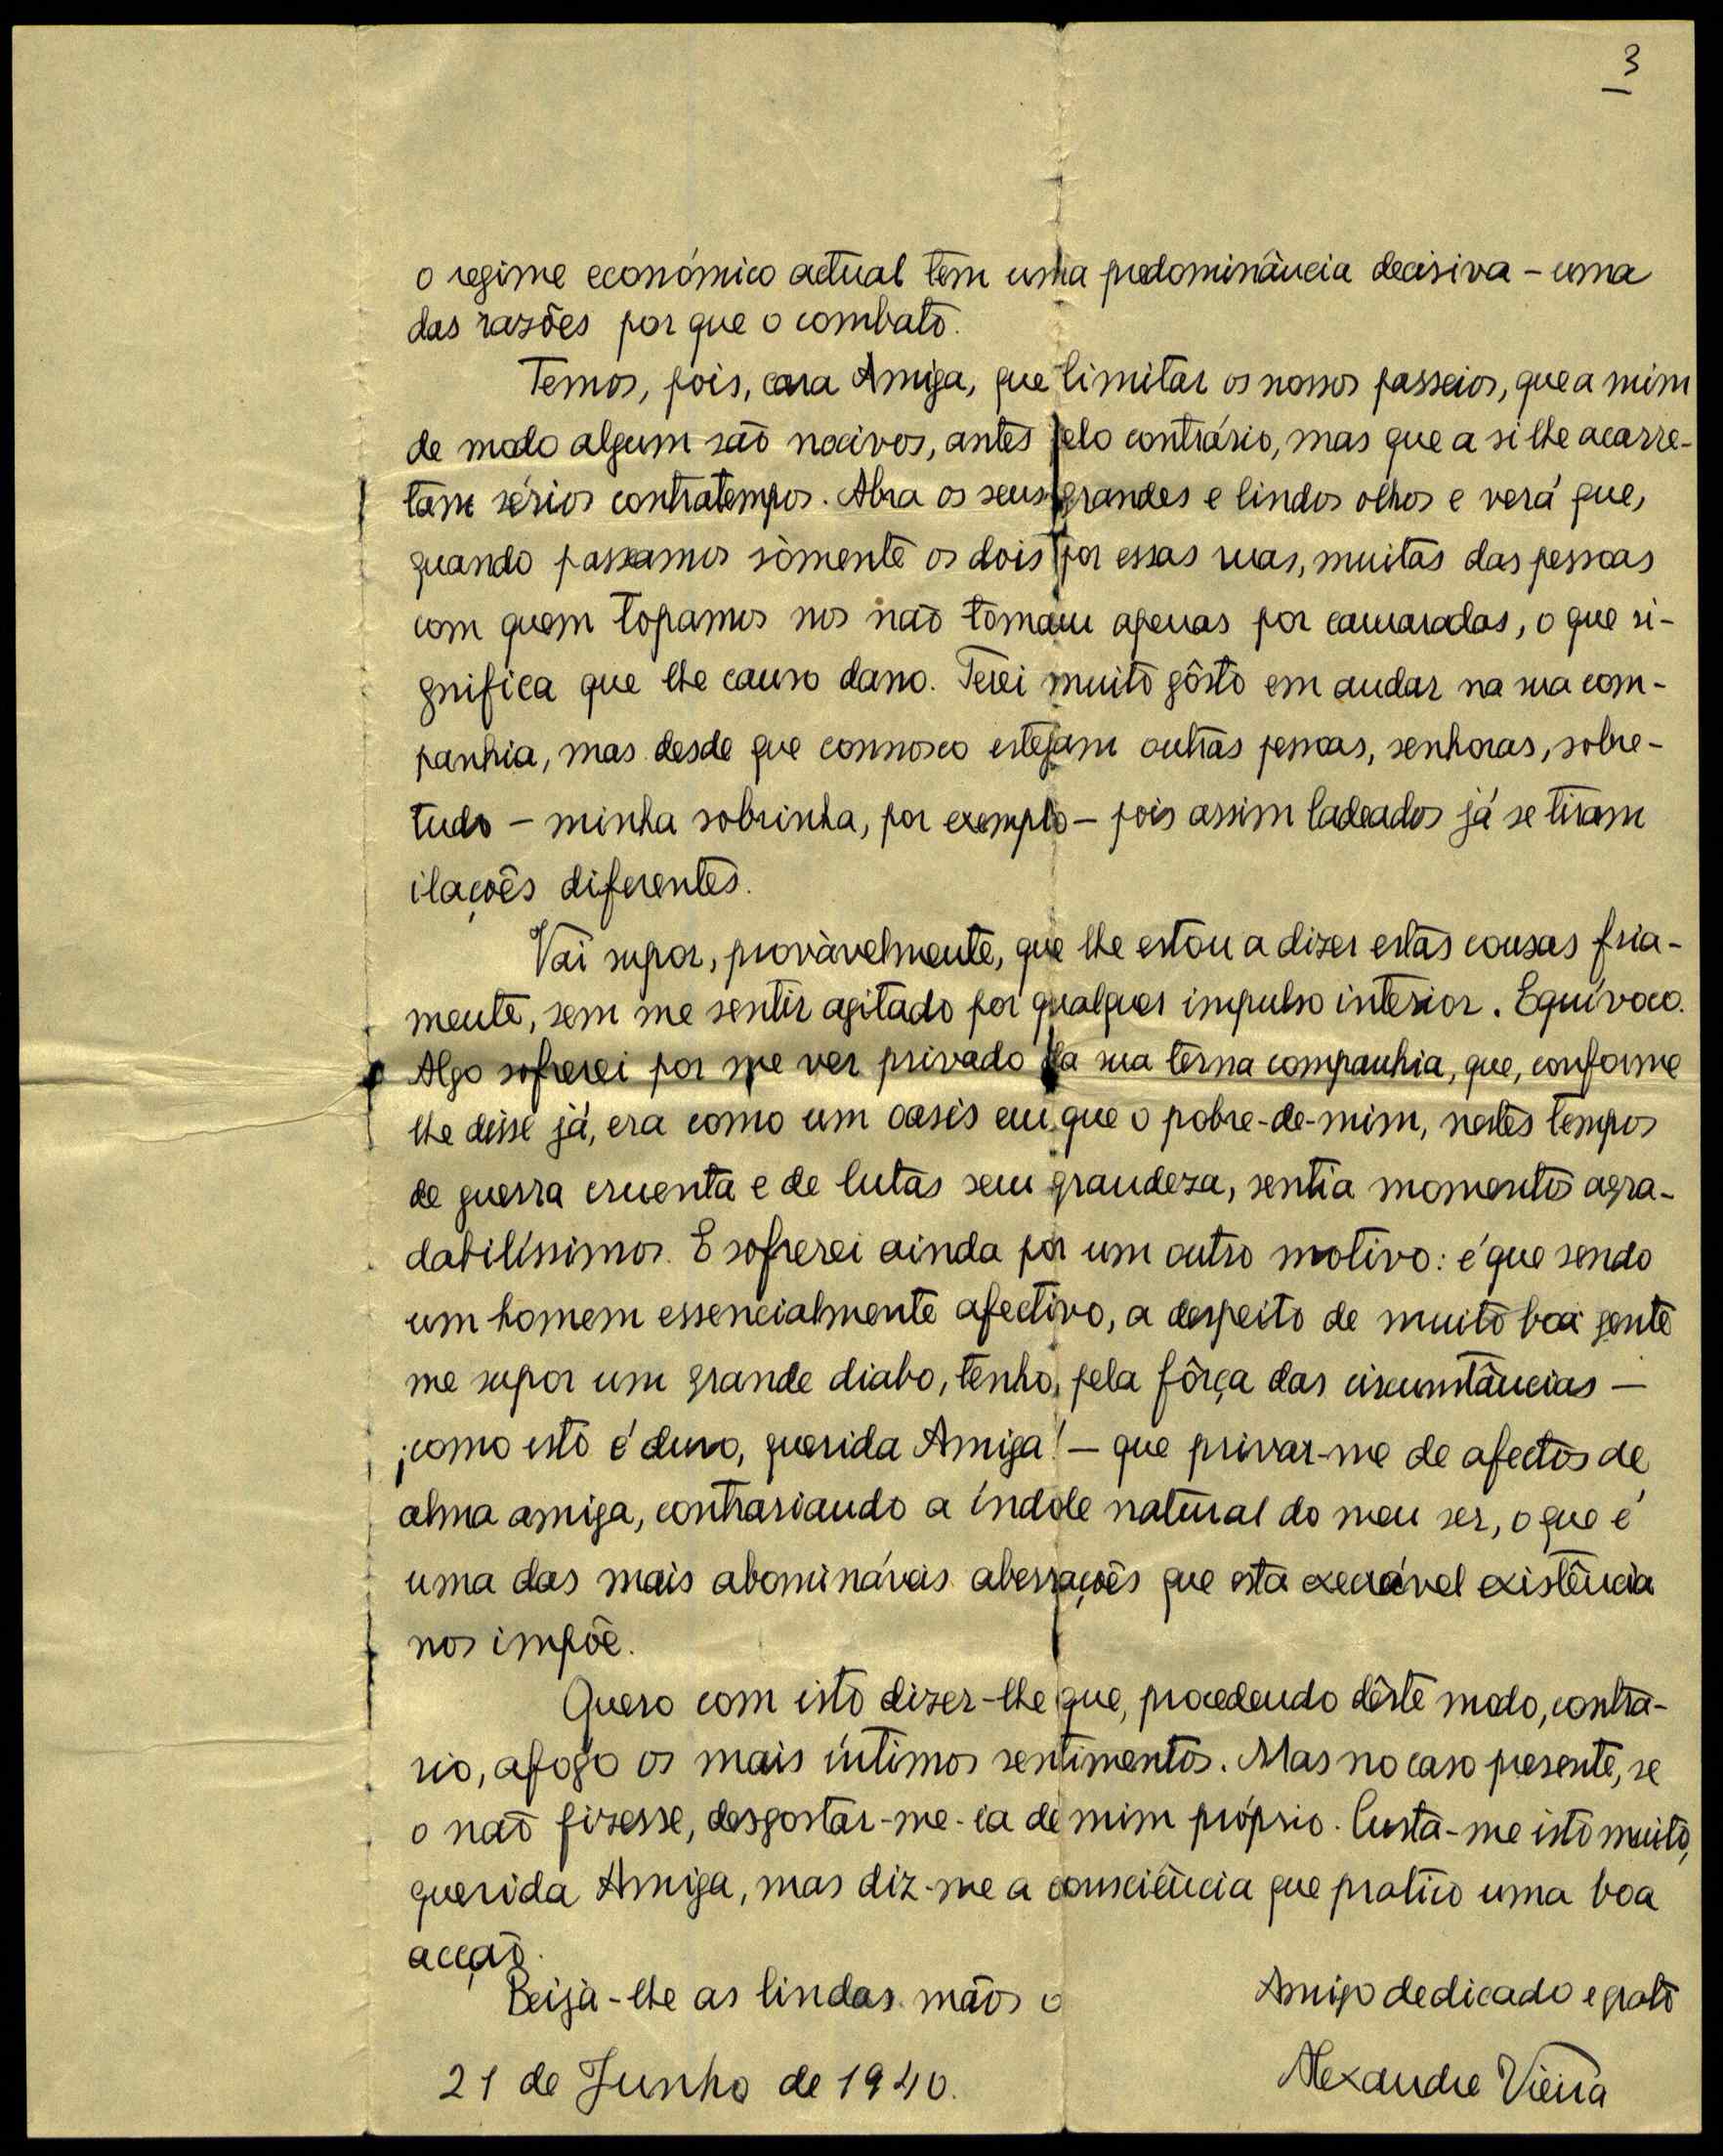 3
o regime económico actual tem uma predominância decisiva – uma
das razões por que o combato.
Temos, pois, cara Amiga, que limitar os nossos passeios, que a mim
de modo algum são nocivos, antes pelo contrário, mas que a si lhe acarre-
tam sérios contratempos. Abra os seus grandes e lindos olhos e verá que,
quando passeamos sòmente os dois por essas ruas, muitas das pessoas
com quem topamos nos não tomam apenas por camaradas, o que si-
gnifica que lhe causo dano. Terei muito gôsto em andar na sua com-
panhia, mas desde que connosco estejam outras pessoas, senhoras, sobre-
tudo – minha sobrinha, por exemplo – pois assim ladeados já se tiram
ilações diferentes.
Vai supor, provàvelmente, que lhe estou a dizer estas cousas fria-
mente, sem me sentir agitado por qualquer impulso interior. Equívoco.
Algo sofrerei por me ver privado da sua terna companhia, que, conforme
lhe disse já, era como um oasis em que o pobre-de-mim, nestes tempos
de guerra cruenta e de lutas sem grandeza, sentia momentos agra-
dabilíssimos. E sofrerei ainda por um outro motivo: é que sendo
um homem essencialmente afectivo, a despeito de muito boa gente
me supor um grande diabo, tenho, pela fôrça das circunstâncias –
¡como isto é duro, querida Amiga! – que privar-me de afectos de
alma amiga, contrariando a índole natural do meu ser, o que é
uma das mais abomináveis aberrações que esta execrável existência
nos impõe.
Quero com isto dizer-lhe que, procedendo dêste modo, contra-
rio, afogo os mais íntimos sentimentos. Mas no caso presente, se
o não fizesse, desgostar-me-ia de mim próprio. Custa-me isto muito,
querida Amiga, mas diz-me a consciência que pratico uma boa
acção.
Beija-lhe as lindas mãos o
Amigo dedicado e grato
21 de Junho de 1940.
Alexandre Vieira